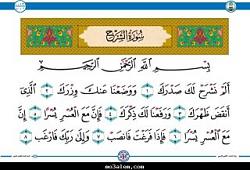 سُورَةُ الشَّرْحِ
بِسْمِ اللَّهِ الرَّحْمَٰنِ الرَّحِيمِ
أَلَمْ نَشْرَحْ لَكَ صَدْرَكَ ١ وَوَضَعْنَا عَنكَ وِزْرَكَ ٢ الَّذِي
أَنقَضَ ظَهْرَكَ ٣ وَرَفَعْنَا لَكَ ذِكْرَكَ ٤ فَإِنَّ مَعَ الْعُسْرِ يُسْرًا ٥ إِنَّ
مَعَ الْعُسْرِ يُسْرًا ٦ فَإِذَا فَرَغْتَ فَانصَبْ ٧ وَإِلَىٰ رَبِّكَ فَارْغَب ٨
mo3alem.com